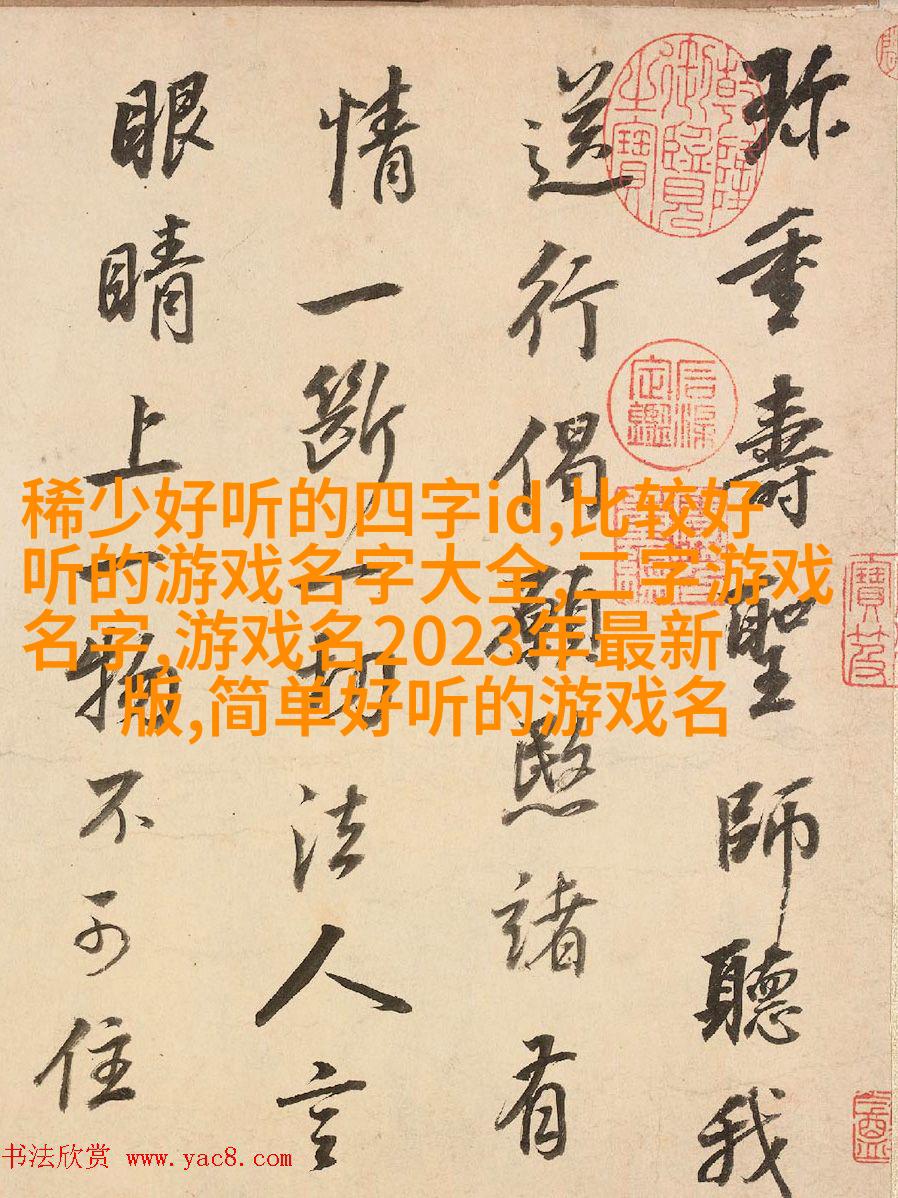 珎重壽聖師聽我
送行偈願愍諸有
情一斷一切法人言
眼睛上一物不可住
乾隆御覽之寶
石渠定鑑
稀少好听的四字id,比较好
听的游戏名字大全,二字游戏
名字,游戏名2023年最新
版,简单好听的游戏名
书法欣赏 www.yac8.com